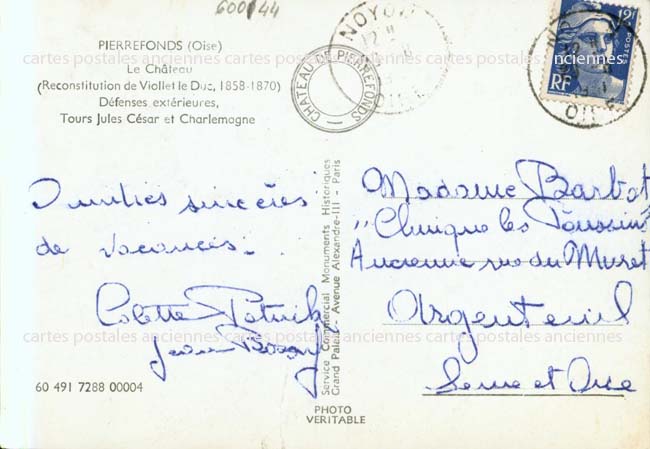 600/44
PIERREFONDS (Oise)
Le Château
(Reconstitution de Viollet le Duc, 1858-1870)
Défenses extérieures,
Tours Jules César et Charlemagne
CHATEAU DE PIERREFONDS
NOYON
OISE
12F
POSTES
RF
OISE
cartes postales anciennes cartes postales anciennes cartes postales anciennes
Amitiés sincères
de vacances.
Colette Patrick
Jean
60 491 7288 00004
Service Commercial Monuments Historiques
Grand Palais - Avenue Alexandre-III - Paris
PHOTO
VERITABLE
Madame Barbot
"Clinique les Poussins"
Ancienne rue du Muret
Argenteuil
Seine et Oise
cartes postales anciennes cartes postales anciennes cartes postales anciennes